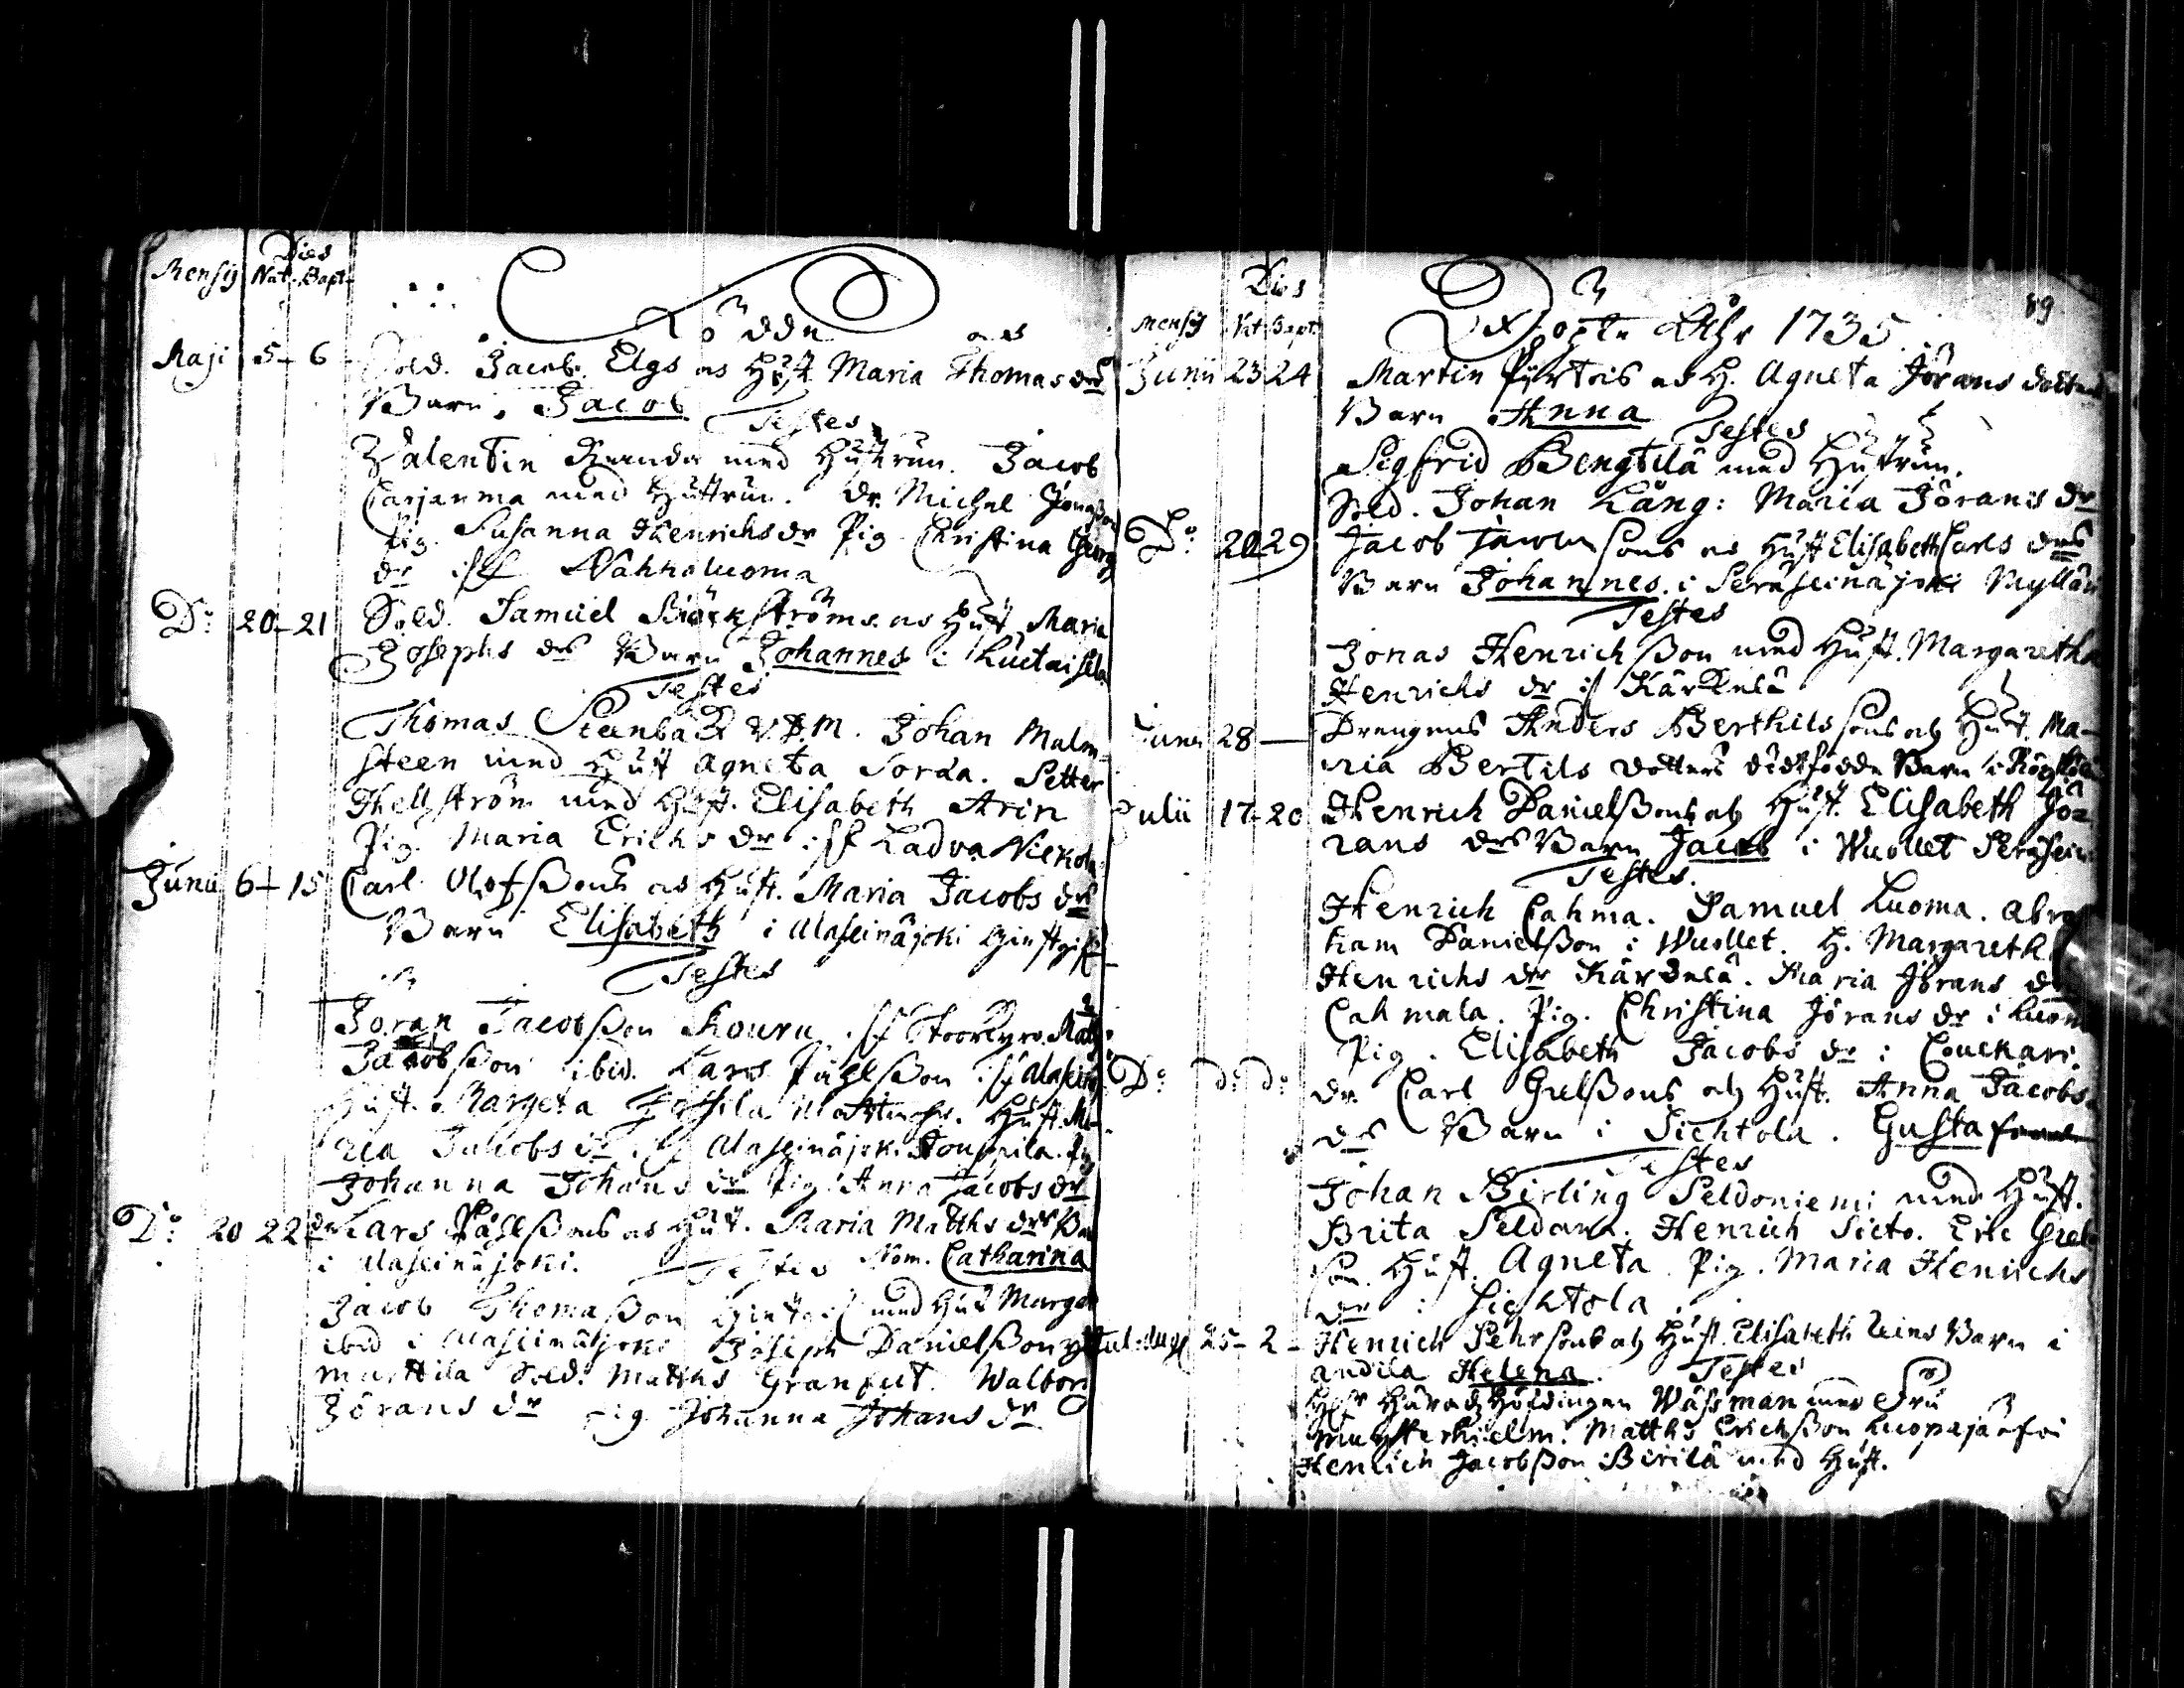 Dies
Mensis Nat. Bapt.
Födde och
Maji 5-6 Sold. Jacob Elgs och Hust. Maria Thomas drs
Barn. Jacob
Testes
Valentin Ruuda med Hustrun. Jacob
Carjanma med Hustrun. Dr. Michel Jönsson
Pig. Susanna Henrichs dr Pig. Christina Georg
dr Nahnaluoma
Do 20-21 Sold. Samuel Biörkströms och Hust. Maria
Josephs drs Barn Johannes i Luctaisela
Testes
Thomas Steenback V.D.M. Johan Malm-
steen med Hust Agneta Sorda. Petter
Hellström med Hust. Elisabeth Arin
Pig. Maria Erichs dr Ladva Nickola
Junii 6-15 Carl Olofssons och Hust. Maria Jacobs drs
Barn Elisabeth i Alaseinäjoki
Testes
Joran Jacobsson Kouru Stoorkyro. Matts
Jacobsson ibid. Lars Påhlsson Alasein
Hust. Margeta Hust. Ma-
ria Jacobs dr Alaseinäjoki Jouppila. Pig
Johanna Johans dr Pig. Anna Jacobs dr
Do 20 22 Lars Påhlssons och Hust. Maria Matths drs Barn
i Alaseinäjoki. Testes Nom. Catharina
Jacob Thomasson med Hust Marget
ibid i Alaseinäjoki Joseph Danielsson
Marttila Sold. Matths Granqut. Walbor
Jörans dr Pig Johanna Johans dr
89
Dies
Mensis Nat. Bapt.
Döpte Åhr 1735
Junii 23 24 Martin Pyrtois och H. Agneta Jörans dotters
Barn Anna
Testes
Sigfrid Bengtilä med Hustrun.
Sold. Johan Lång: Maria Jörans dr
Do 29 Jacob sons och Hust Elisabeth Carls drs
Barn Johannes. i Peräseinäjoki Myllär
Testes
Jonas Henrichsson med Hust. Margaretha
Henrichs dr Kärkelä
Junii 28 — Drengens Anders Berthilssons och Hust. Ma-
ria Bertils dotters dödfödde Barn
Julii 17-20 Henrich Danielssons och Hust. Elisabeth Jö-
rans drs Barn Jacob i Wuollet Peräsein
Testes.
Henrich Cahma. Samuel Luoma. Abra
ham Danielsson i Wuollet. H. Margareth
Henrichs dr Kärkelä. Maria Jörans dr
Cahmala. Pig. Christina Jörans dr i Luom
Pig. Elisabeth Jacobs dr i Couckari
Do do do dr. Carl Grelssons och Hust. Anna Jacobs
drs Barn i Sichtola. Gustaf
Testes
Johan Birling Peldoniemi med Hust.
Brita Peldari. Henrich Sicto. Eric Grel
son Hust. Agneta. Pig. Maria Henrichs
dr i Sichtola.
Jul. Aug. 25-2 Henrich Pehrsons och Hust. Elisabeth Barn i
andila Helena. Testes
Hr Häradz Höfdingen Wässman med Fru
Matths Erichsson Luopajärfvi
Henrich Jacobsson Birilä med Hust.